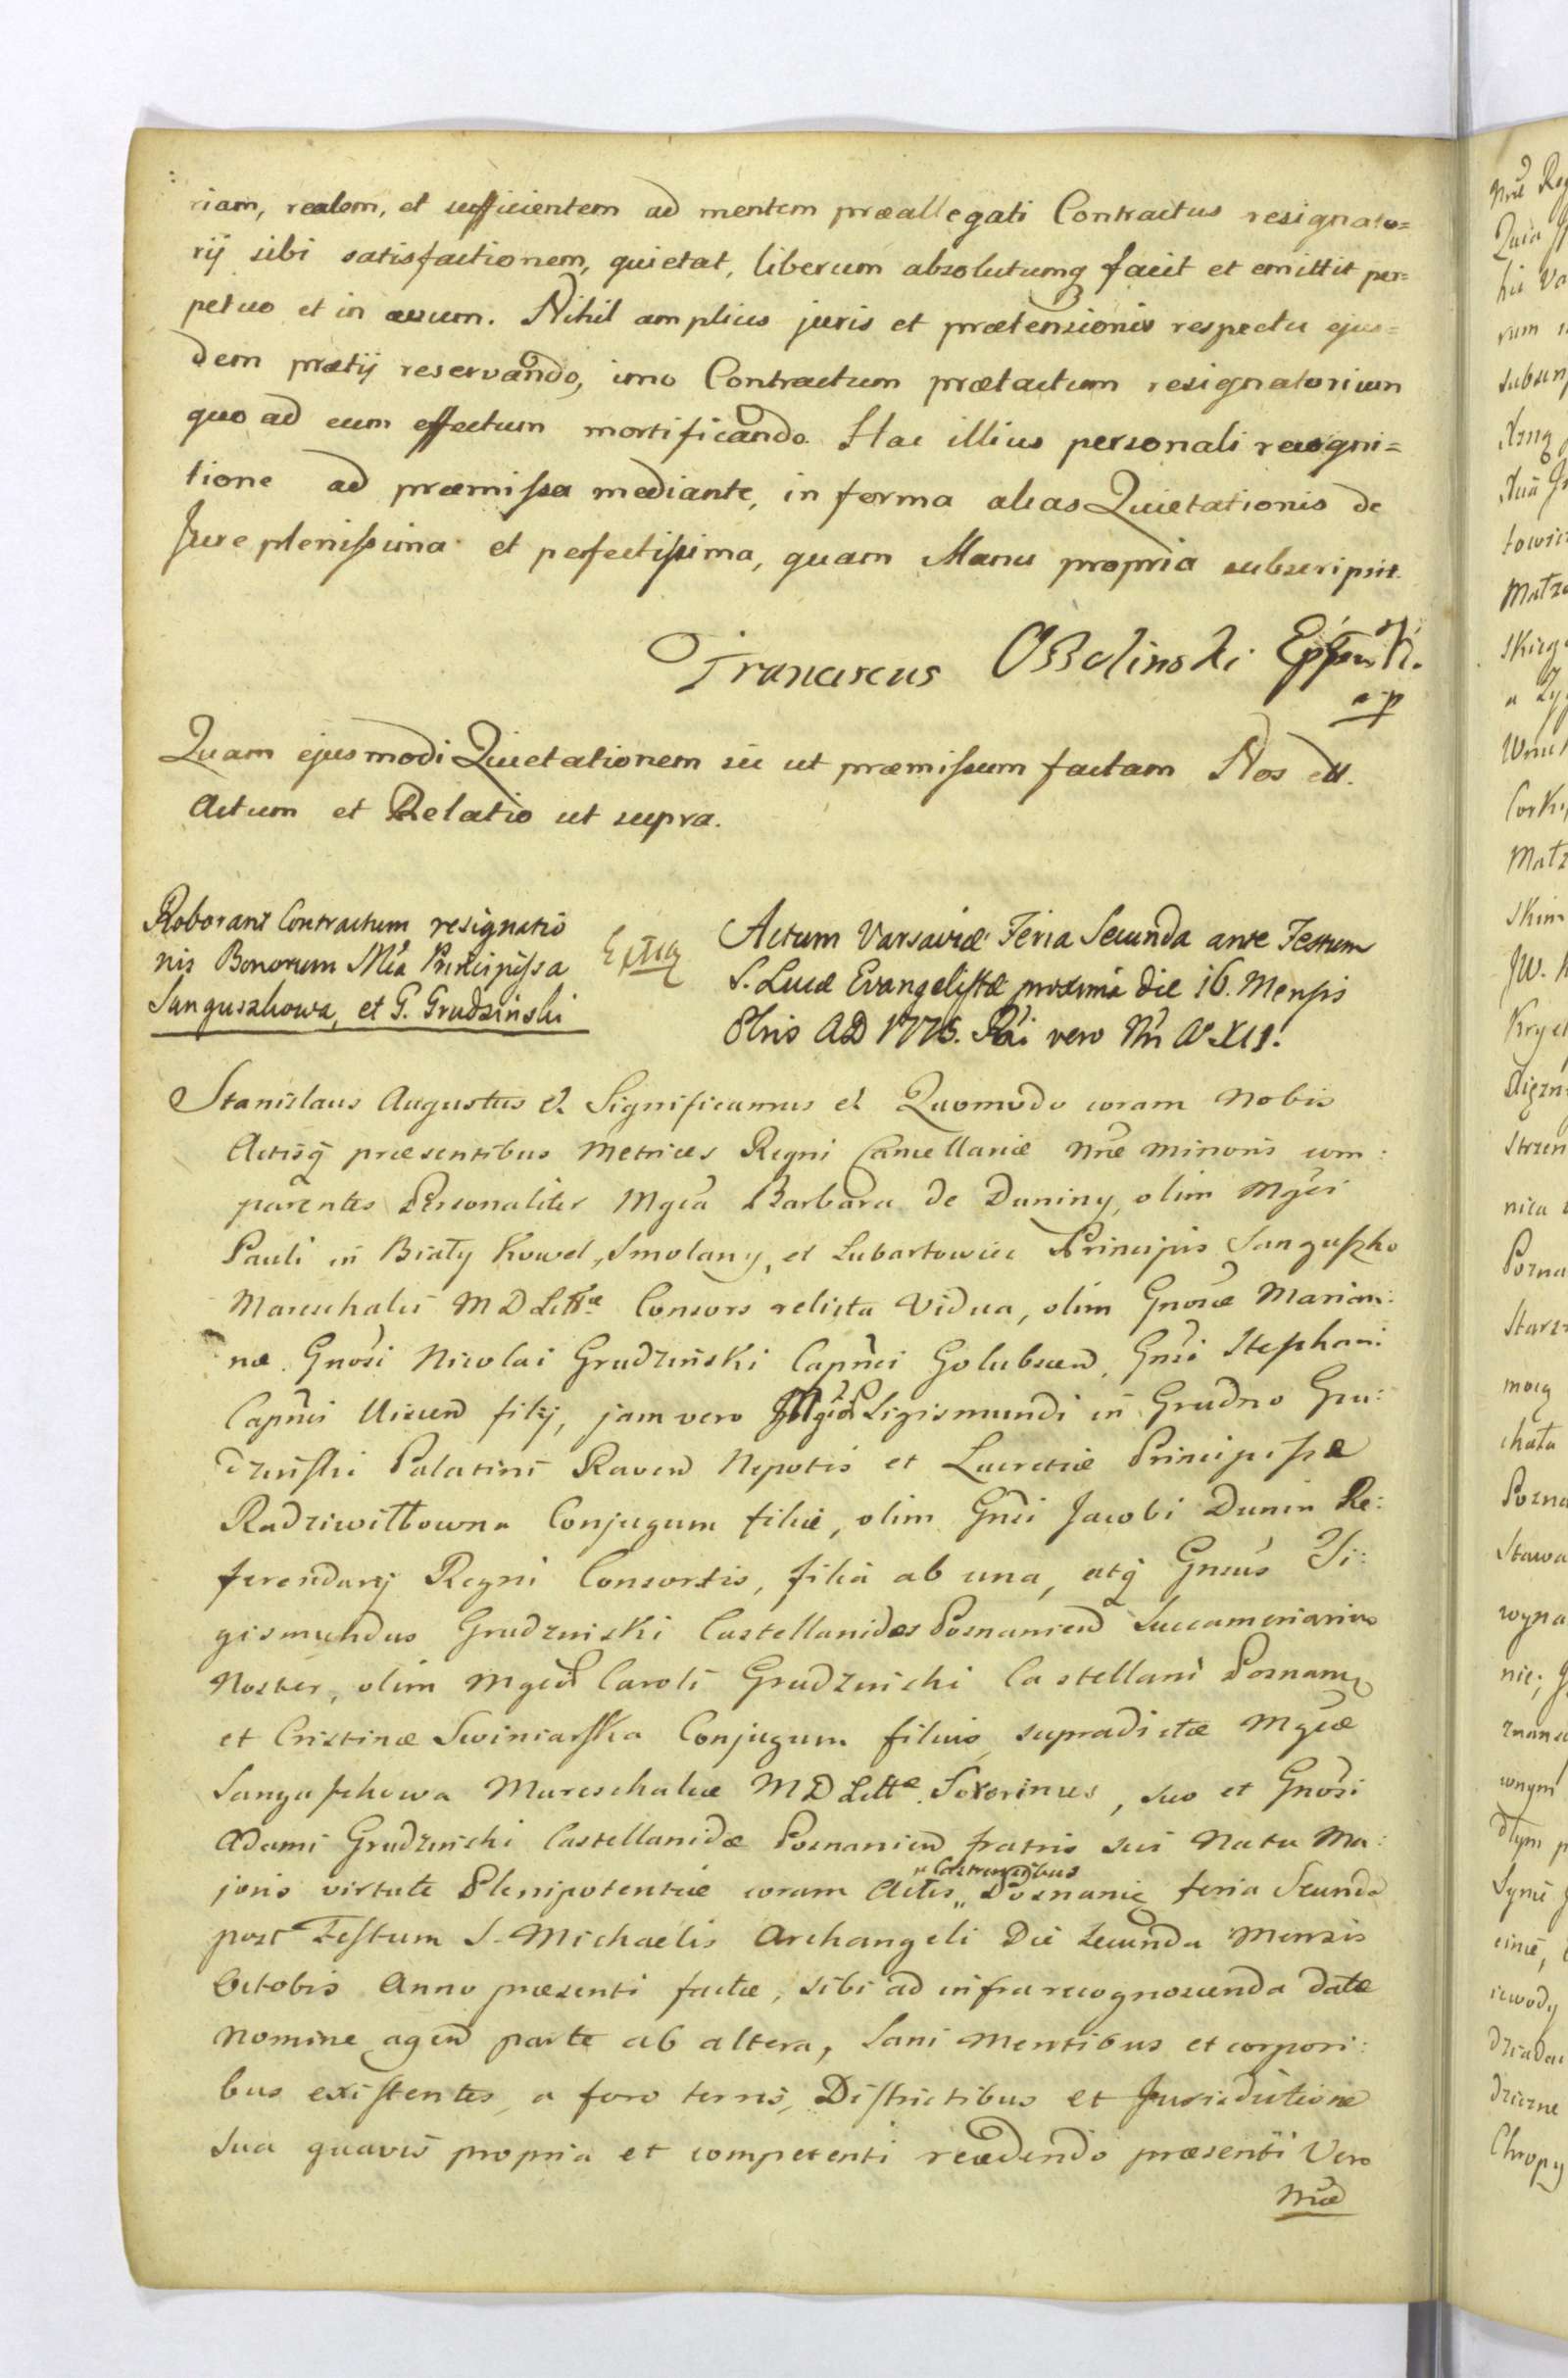 riam, realem, et sufficientem ad mentem præallegati Contractus resignato=
rij sibi satisfactionem, quietat, liberum absolutumq facit et emittit per=
petuo et in ævum. Nihil amplius juris et prætensionis respectu ejus=
dem prætij reservando, imo Contractum prætactum resignatorium
quo ad eum effectum mortificando. Hac illius personali recogni=
tione ad præmissa mediante, in forma alias Quietationis de
Jure plenissima et perfectissima, quam Manu propria subscripsit.
Franciscus Ossolinski
mp
Quam ejusmodi Quietationem sic ut præmissum factam Nos ett.
Actum et Relatio ut supra.
Roborant Contractum resignatio
nis Bonorum Mca Principissa
Sanguszkowa, et G. Grudzinski
Actum Varsaviæ Feria Secunda ante Festum
S. Lucæ Evangelistæ proxima die 16. Mensis
8bris AD 1775. Rni vero Nri Ao XII.
Stanislaus Augustus et Significamus et Quomodo coram Nobis
Actisq præsentibus Metrices Regni Cancellariæ Nræ Minoris com:
parentes Personaliter Mgca Barbara de Duniny, olim Mgci
Pauli in Biały Kowel, Smolany, et Lubartowiec Principis Sanguszko
Mareschalis M D Littæ Consors relicta Vidua, olim Gnosæ Marian:
næ Gnosi Nicolai Grudzinski Capnei Golubscen, Gnsi Stephani
Capnei Uiscen filij, jam vero Mgci Sigismundi in Grudno Gru:
dzinski Palatini Raven Nepotis et Lucretiæ Principissæ
Radziwiłłowna Conjugum filiæ, olim Gnsi Jacobi Dunin Re:
ferendarij Regni Consortis, filia ab una, atq Gnsus Si:
gismundus Grudzinski Castellanides Posnanien Succamerarius
Noster, olim Mgci Caroli Grudzinski Castellani Posnan
et Cristinæ Swiniarska Conjugum filius, supradictæ Mgcæ
Sanguszkowa Mareschalcæ M D Littæ Sororinus, suo et Gnosi
Adami Grudzinski Castellanidæ Posnanien fratris sui Natu Ma:
joris virtute Plenipotentiæ coram Actis „Castrensibus„ Posnaniæ feria Secunda
post Festum S. Michaelis Archangeli Die Secunda Mensis
Octobis Anno præsenti factæ, sibi ad infra recognoscenda datæ
Nomine agen parte ab altera, Sani Mentibus et corpori:
bus existentes, a foro terris, Districtibus et Jurisdictione
sua quavis propria et competenti recedendo præsenti Vero
Nræ